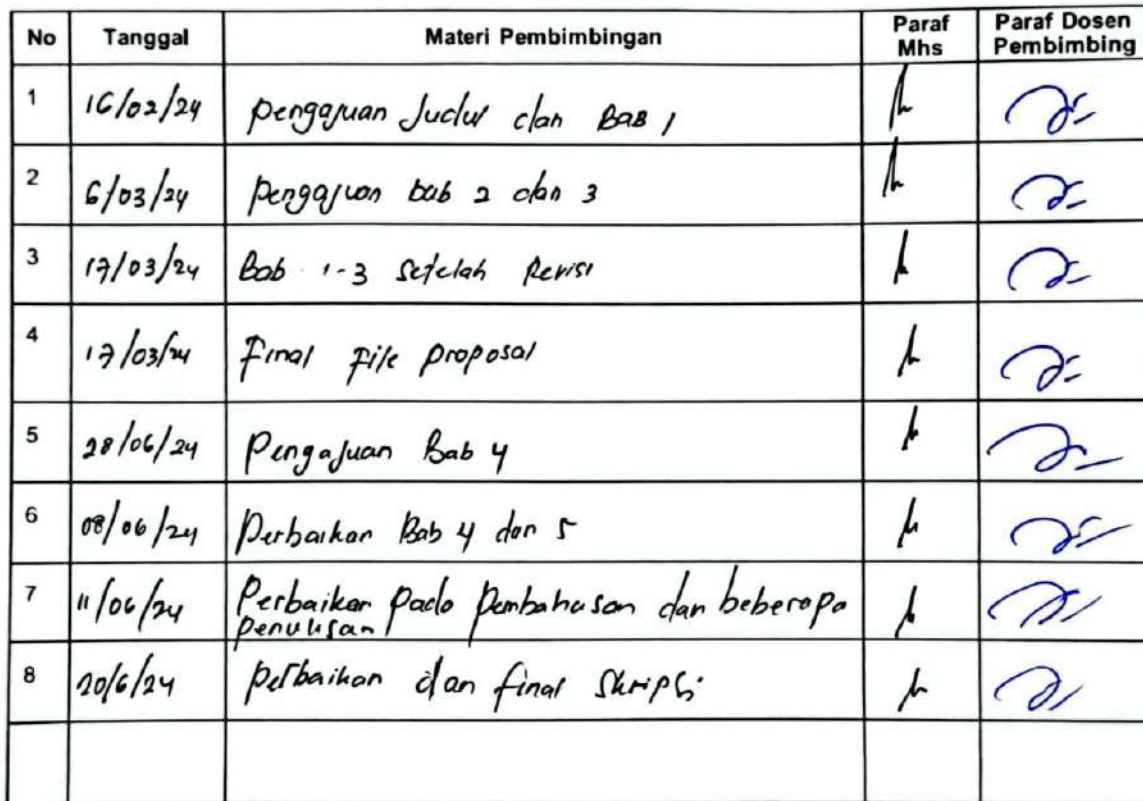 No Tanggal Materi Pembimbingan Paraf Mhs Paraf Dosen Pembimbing
1 16/02/24 Pengajuan Judul dan Bab 1
2 6/03/24 Pengajuan bab 2 dan 3
3 17/03/24 Bab 1-3 Setelah Revisi
4 17/03/24 Final File proposal
5 28/06/24 Pengajuan Bab 4
6 08/06/24 Perbaikan Bab 4 dan 5
7 11/06/24 Perbaikan Pada Pembahasan dan beberapa
penulisan
8 20/6/24 Perbaikan dan final Skripsi